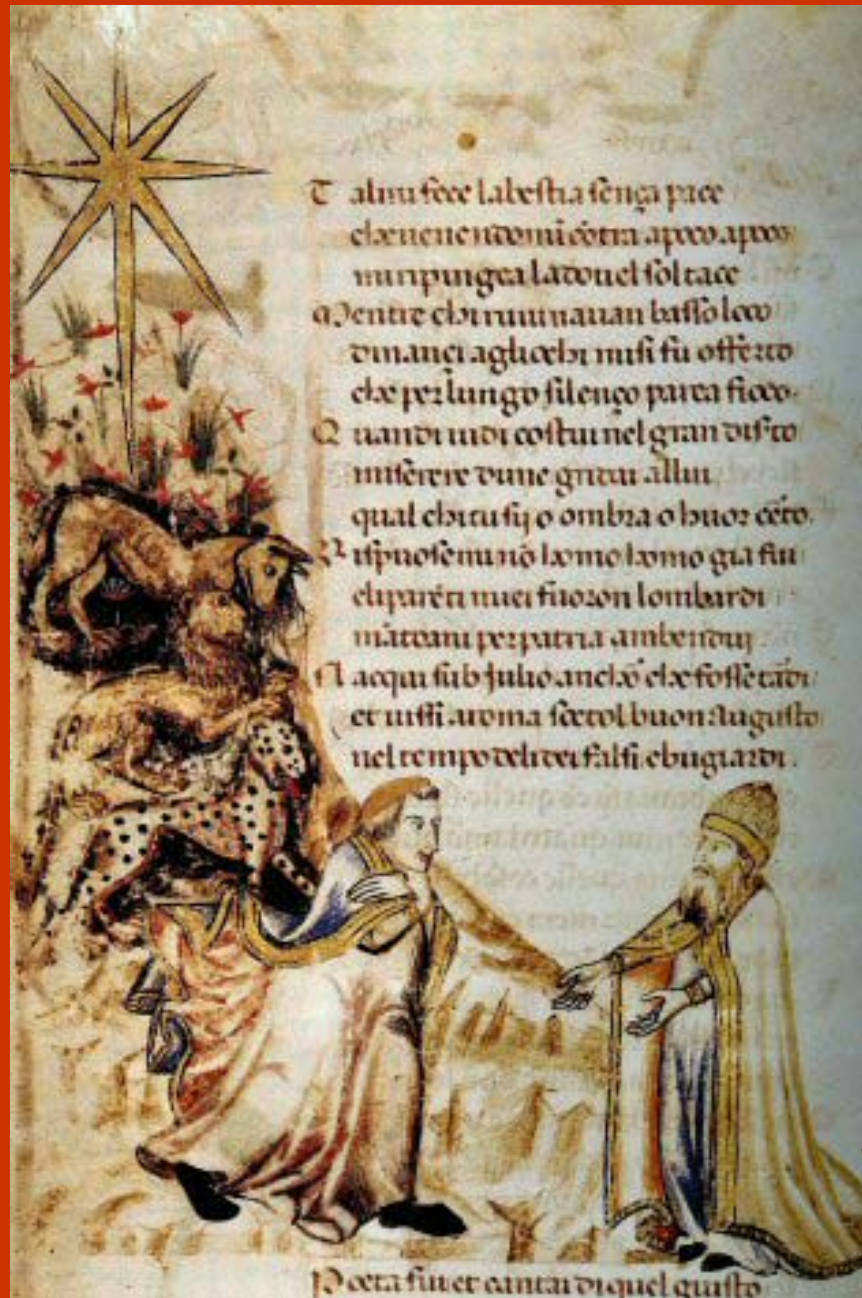 T al mi fece la bestia sença pace
che venendomi cōtra apoco apoco
mi ripingea la dovel sol tace
Mentre chi ruvinavan basso loco
dinanci agliochi misi fu offerto
che per lungo silenço parea fioco.
Q uandi vidi costui nel gran disto
miserere dime gridai allui
qual chi tu sij o ombra o huor certo.
R ispuosemi nō homo homo gia fui
eli parēti miei fuoron lombardi
mātoani per patria ambendui
N acqui sub Julio anchor che fosse tādi
et vissi aroma sottol buon Augusto
nel tempo deli dei falsi e bugiardi.
P oeta fui et cantai di quel giusto